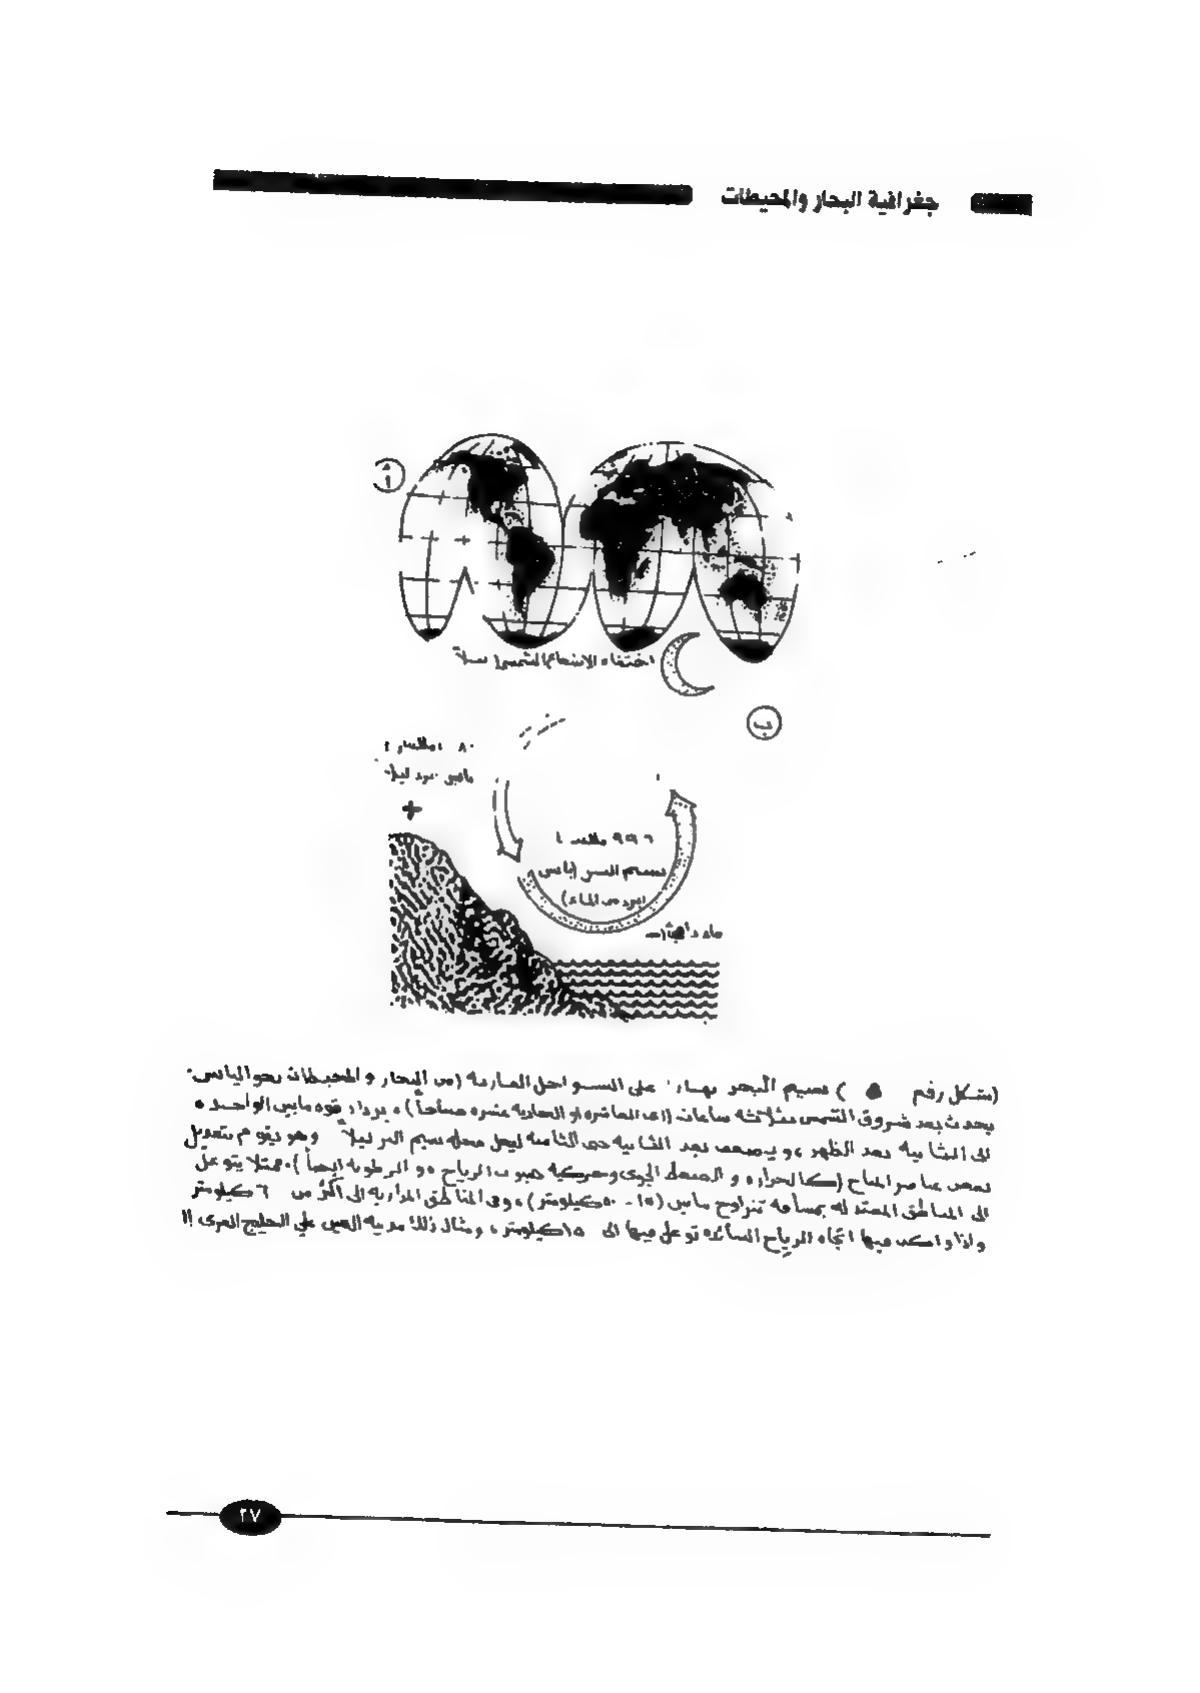 جغرافية البحار والمحيطات
أ
اختفاء الاشعاع الشمسي ليلاً
ب
مابس برد ليلا
+
٩٩٦
نسيم البر (يابس
ابرد من الماء)
ماء دافئ
(شكل رقم ٥ ) نسيم البحر نهارا على السواحل المدارية (من البحار والمحيطات نحو اليابس.
يحدث بعد شروق الشمس بثلاثة ساعات (اى العاشره او الحاديه عشره صباحاً) ، يزداد قوه مابين الواحده
الى الثانيه بعد الظهر، ويضعف بعد الثانيه حتى الثامنه ليحل محله نسيم البر ليلاً وهو يقوم بتعديل
بعض عناصر المناخ (كالحراره و الضغط الجوى وحركيه هبوب الرياح ، و الرطوبه ايضاً). فمثلا يتوغل
الى المناطق المعتدله بمسافه تتراوح مابين (١٥ - ٥٠ كيلومتر) ، وفى المناطق المداريه الى اكثر من ٦ كيلومتر
واذا واكب فيها اتجاه الرياح السائده توغل فيها الى ١٥ كيلومتر ، ومثال ذلك مدينه العين على الخليج العربى !!
٢٧